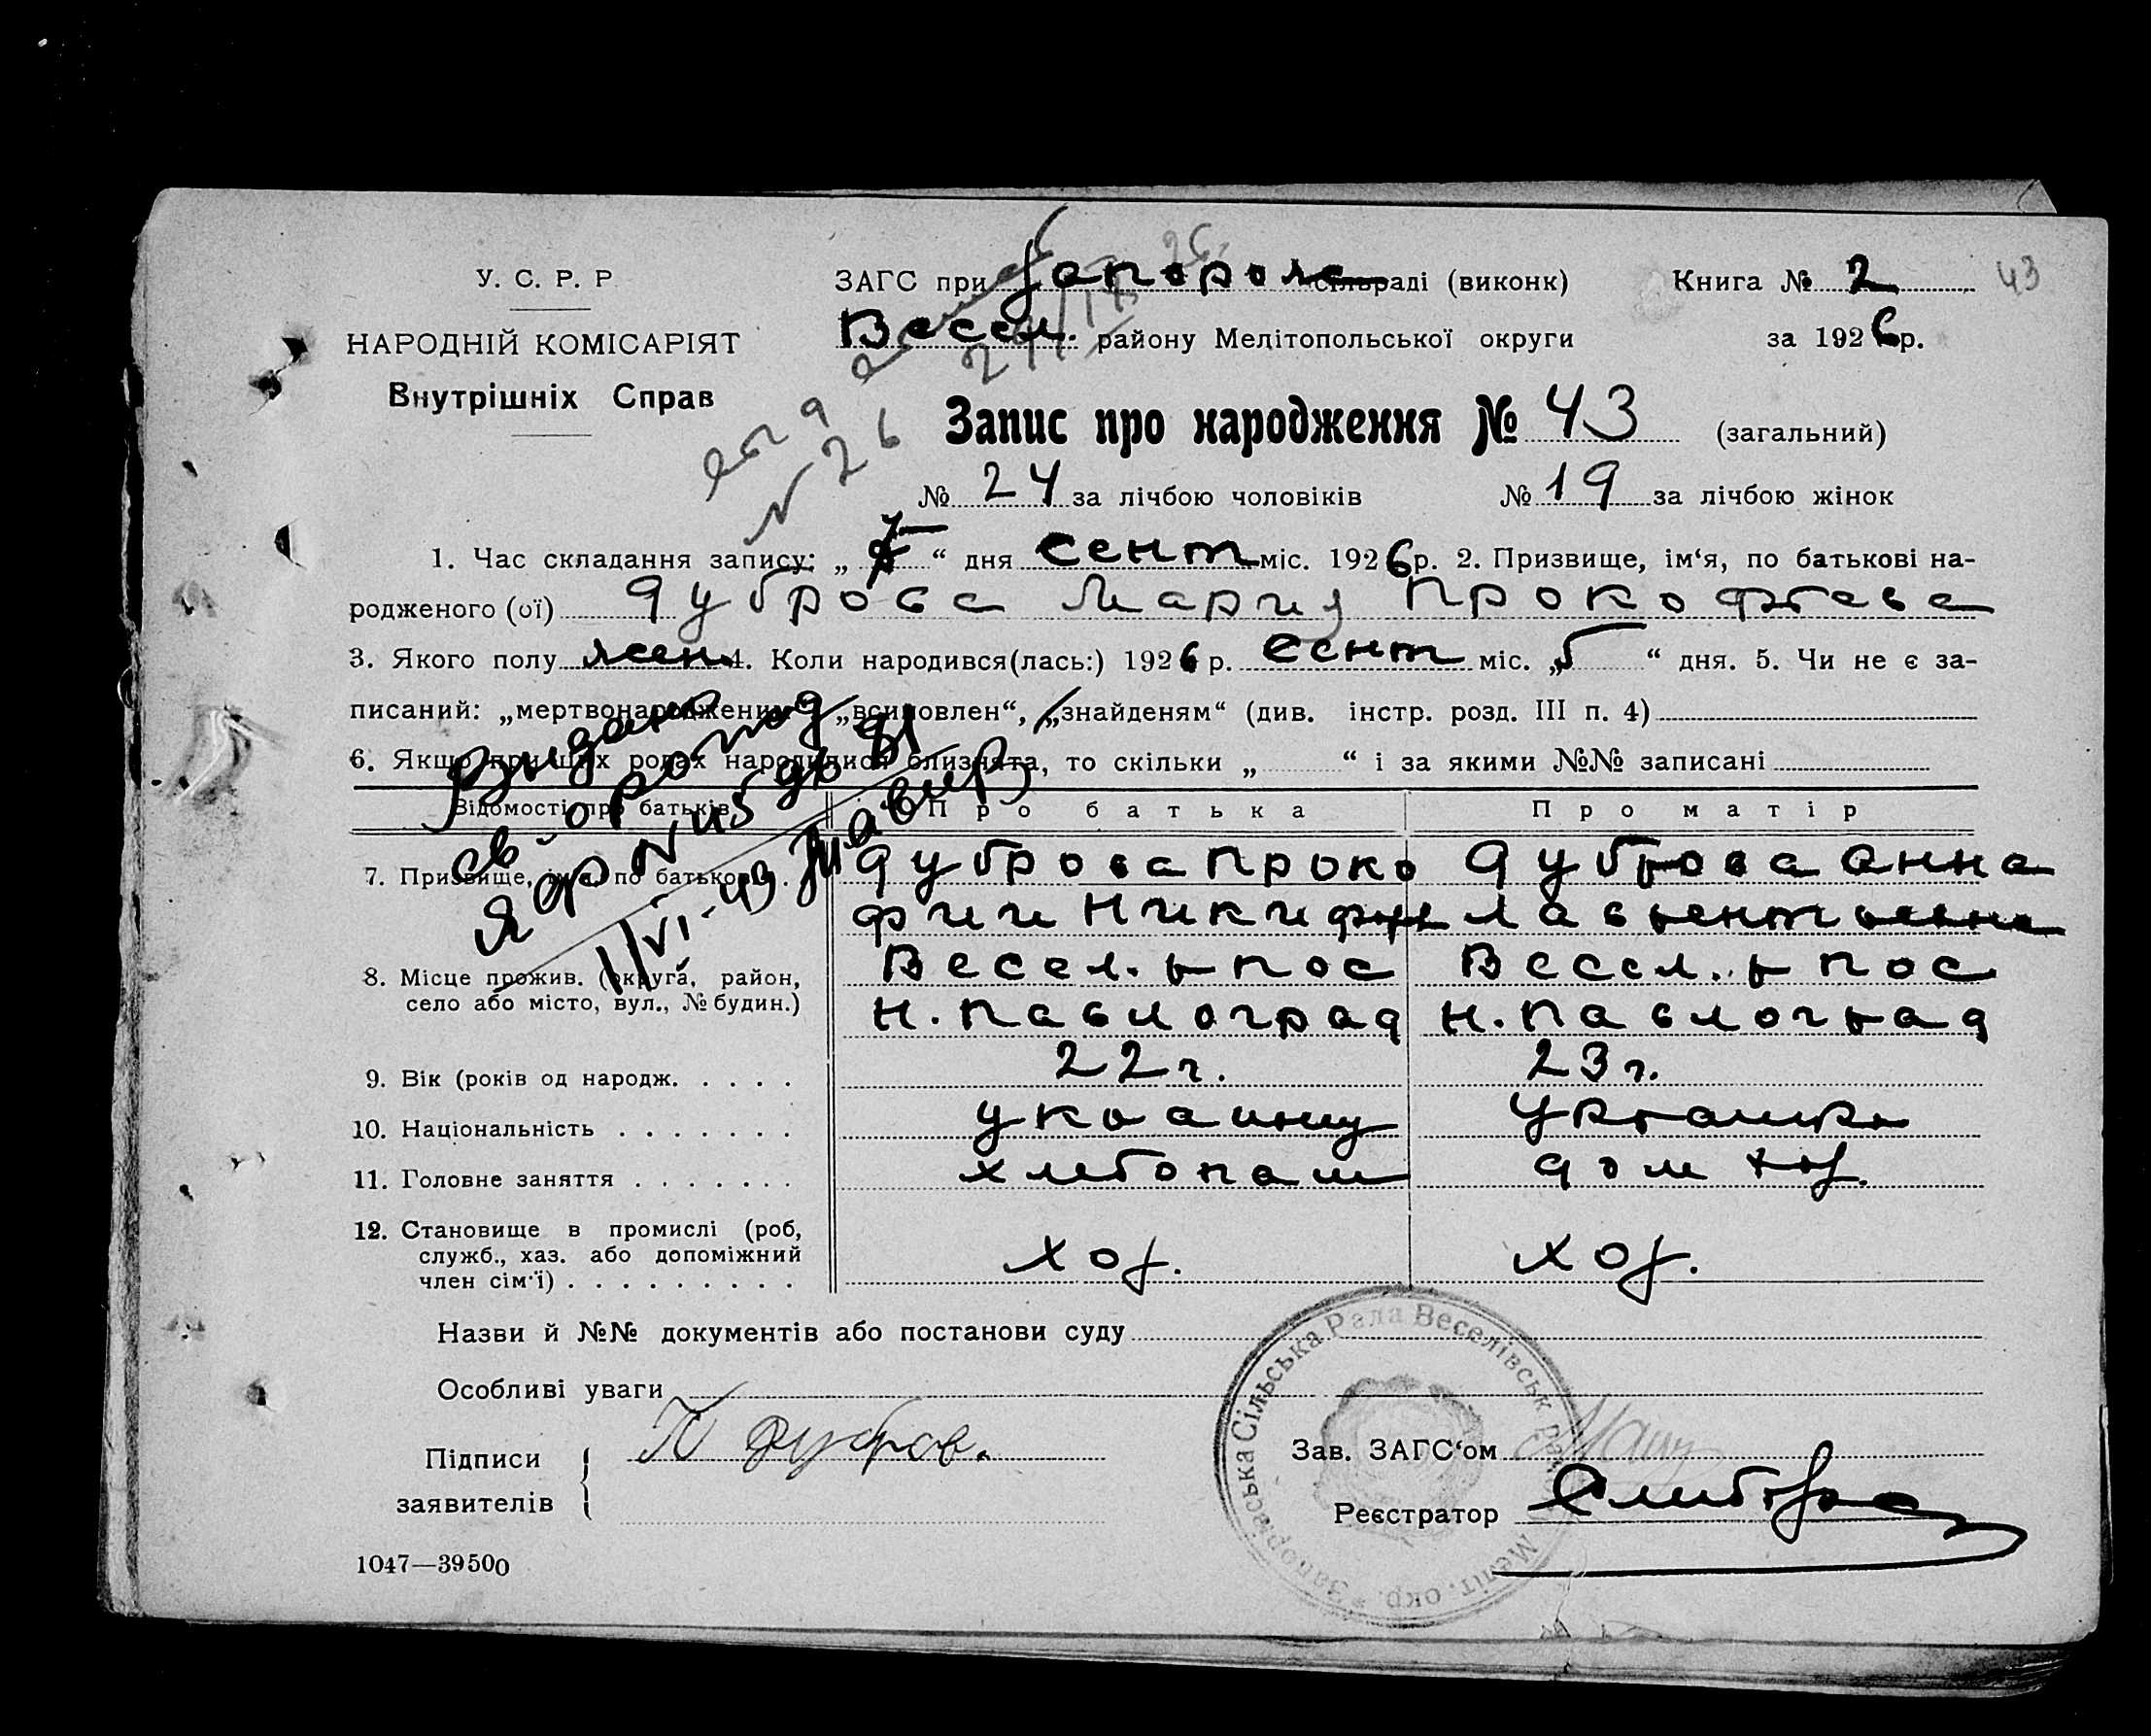 У. С. Р. Р
ЗАГС при Запорож сільраді (виконк)
Книга № 2
43
НАРОДНІЙ КОМІСАРІЯТ
Весел. району Мелітопольської округи
за 1926 р.
Внутрішніх Справ
Запис про народження № 43 (загальний)
№ 26
№ 24 за лічбою чоловіків № 19 за лічбою жінок
1. Час складання запису: „ 7 “ дня сент міс. 1926 р. 2. Призвище, ім‘я, по батькові на-
родженого (ої) Дуброва Мария Прокофьева
3. Якого полу жен 4. Коли народився(лась:) 1926 р. сент міс. „ 5 “ дня. 5. Чи не є за-
писаний: „мертвонародженим“ „всиновлен“, „знайденям“ (див. інстр. розд. III п. 4)
6. Якщо при цих родах народилися близнята, то скільки „ “ і за якими №№ записані
Відомості про батьків
Про батька
Про матір
7. Призвище, ім‘я, по батькові
Дуброва Проко
Дуброва Анна
фии Никифор
Лаврентьевна
8. Місце прожив. (округа, район,
село або місто, вул., № будин.)
Весел. р пос
Весел. р пос
Н. Павлоград
Н. Павлоград
9. Вік (років од народж.
22 г.
23 г.
10. Національність
украинц
украинка
11. Головне заняття
хлебопаш
дом хоз.
12. Становище в промислі (роб,
служб., хаз. або допоміжний
член сім‘ї)
хоз.
хоз.
Назви й №№ документів або постанови суду
Особливі уваги
Підписи
заявителів
Дубров.
Зав. ЗАГС‘ом
Реєстратор
Запорізька Сільська Рада Веселівськ. рай. Меліт. окр.
1047—39500